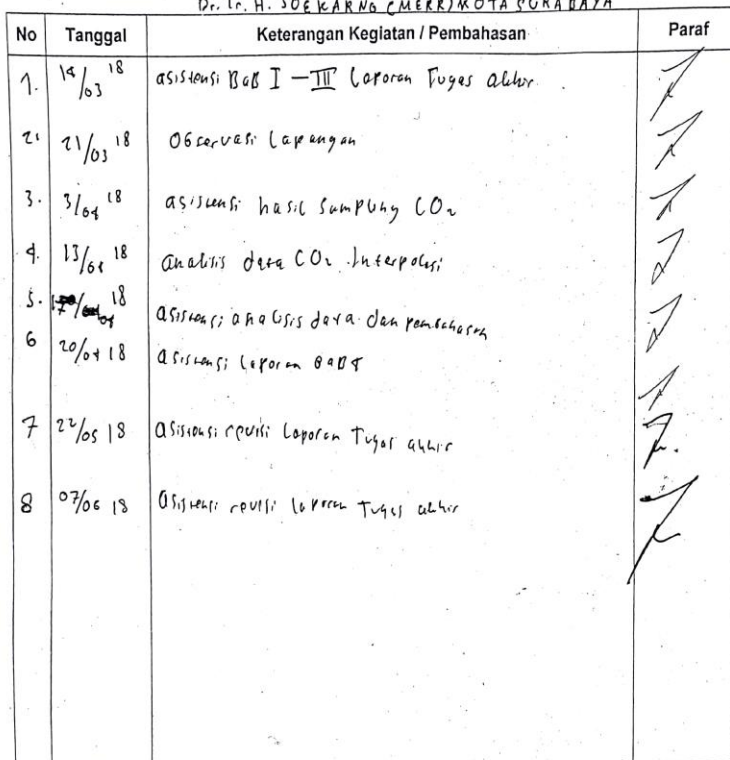 Dr. Ir. H. SOEKARNO (MERR) KOTA SURABAYA
No Tanggal Keterangan Kegiatan / Pembahasan Paraf
1. 14/03 18 asistensi BaB I - III Laporan Tugas akhir
2. 21/03 18 Observasi Lapangan
3. 3/04 18 asistensi hasil Sampling CO2
4. 13/04 18 analisis data CO2 Interpolasi
5. 18 asistensi analisis data dan pembahasan
6 20/04 18 asistensi laporan
7 22/05 18 asistensi revisi Laporan Tugas akhir
8 07/06 18 asistensi revisi laporan Tugas akhir